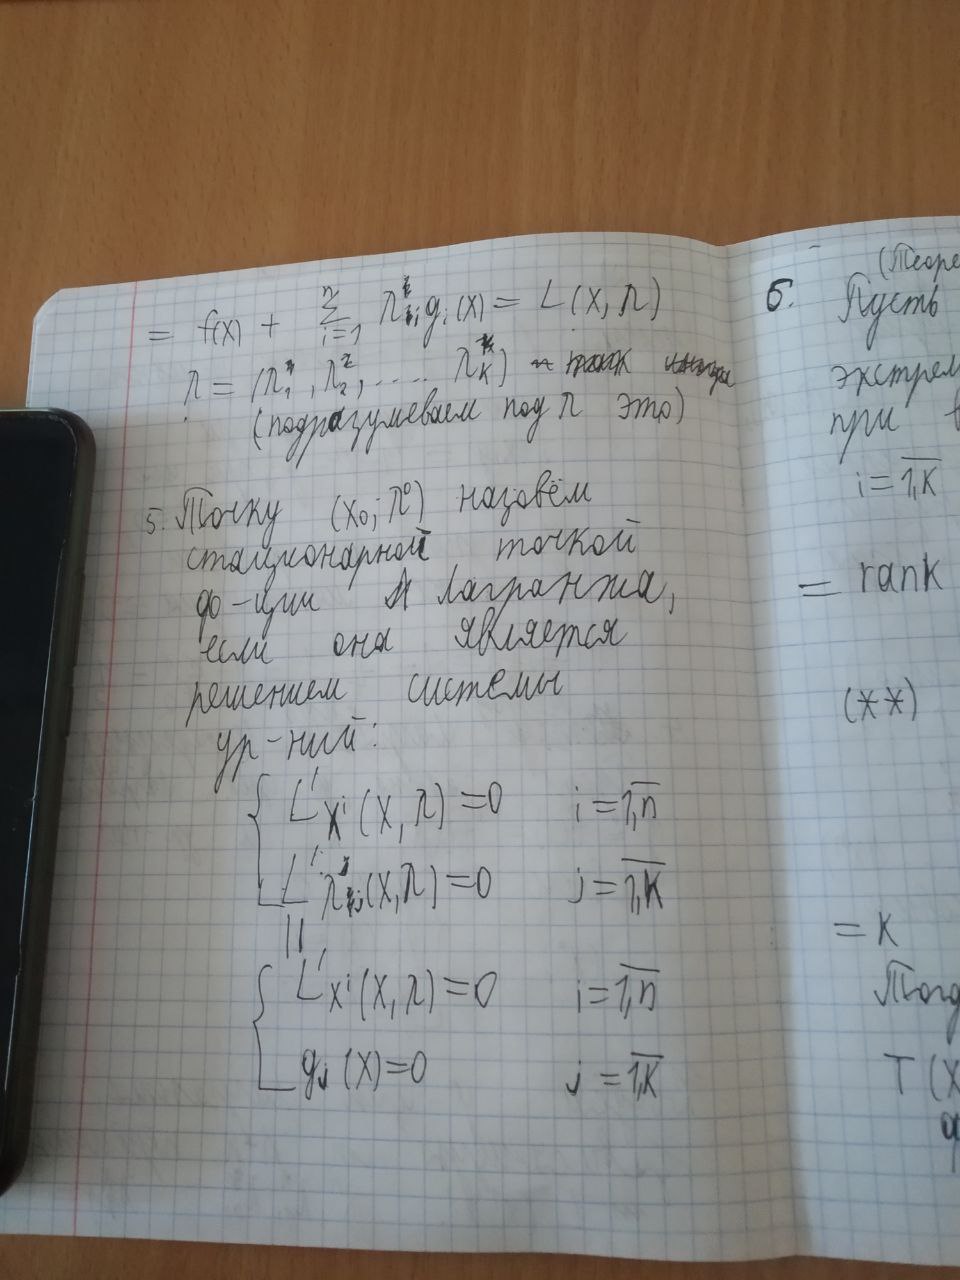 = f(x) + n∑i=1 λi gi(x) = L(x, λ)
λ = (λ1, λ2, .... λk) - так
(подразумеваем под λ это)
5. Точку (x0; λ⁰) назовём
стационарной точкой
ф-ции Лагранжа,
если она является
решением системы
ур-ний:
L'xⁱ(x, λ) = 0 i = 1,n
L'λj(x, λ) = 0 j = 1,k
||
L'xⁱ(x, λ) = 0 i = 1,n
gj(x) = 0 j = 1,k
(Теоре
6. Пусть
экстрем
при
i = 1,k
= rank
(**)
= k
Тогд
T(x